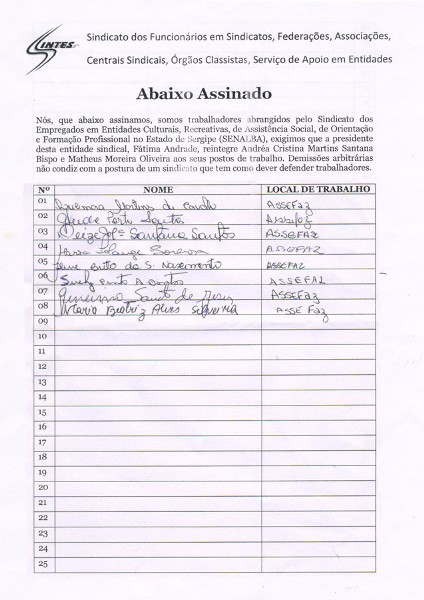 SINTES
Sindicato dos Funcionários em Sindicatos, Federações, Associações,
Centrais Sindicais, Órgãos Classistas, Serviço de Apoio em Entidades
Abaixo Assinado
Nós, que abaixo assinamos, somos trabalhadores abrangidos pelo Sindicato dos
Empregados em Entidades Culturais, Recreativas, de Assistência Social, de Orientação
e Formação Profissional no Estado de Sergipe (SENALBA), exigimos que a presidente
desta entidade sindical, Fátima Andrade, reintegre Andréa Cristina Martins Santana
Bispo e Matheus Moreira Oliveira aos seus postos de trabalho. Demissões arbitrárias
não condiz com a postura de um sindicato que tem como dever defender trabalhadores.
Nº NOME LOCAL DE TRABALHO
01 ASSEFAZ
02 Santos Assefaz
03 Santana Santos ASSEFAZ
04 ASSEFAZ
05 Brito da S. Nascimento ASSEFAZ
06 ASSEFAZ
07 Santos de Jesus ASSEFAZ
08 Maria Beatriz Alves Siqueira ASSEFAZ
09
10
11
12
13
14
15
16
17
18
19
20
21
22
23
24
25